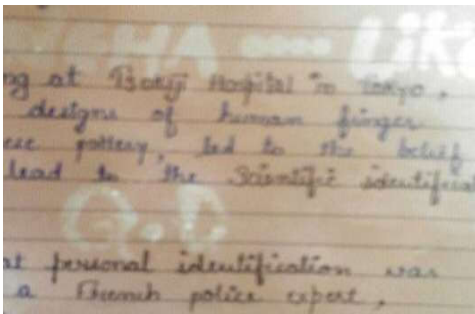 HA ---- Lik
ng at Tsukiji Hospital in Tokyo,
designs of human finger
ese pottery, led to the belief
lead to the Scientific identificat
Q.D
at personal identification was
a French police expert,